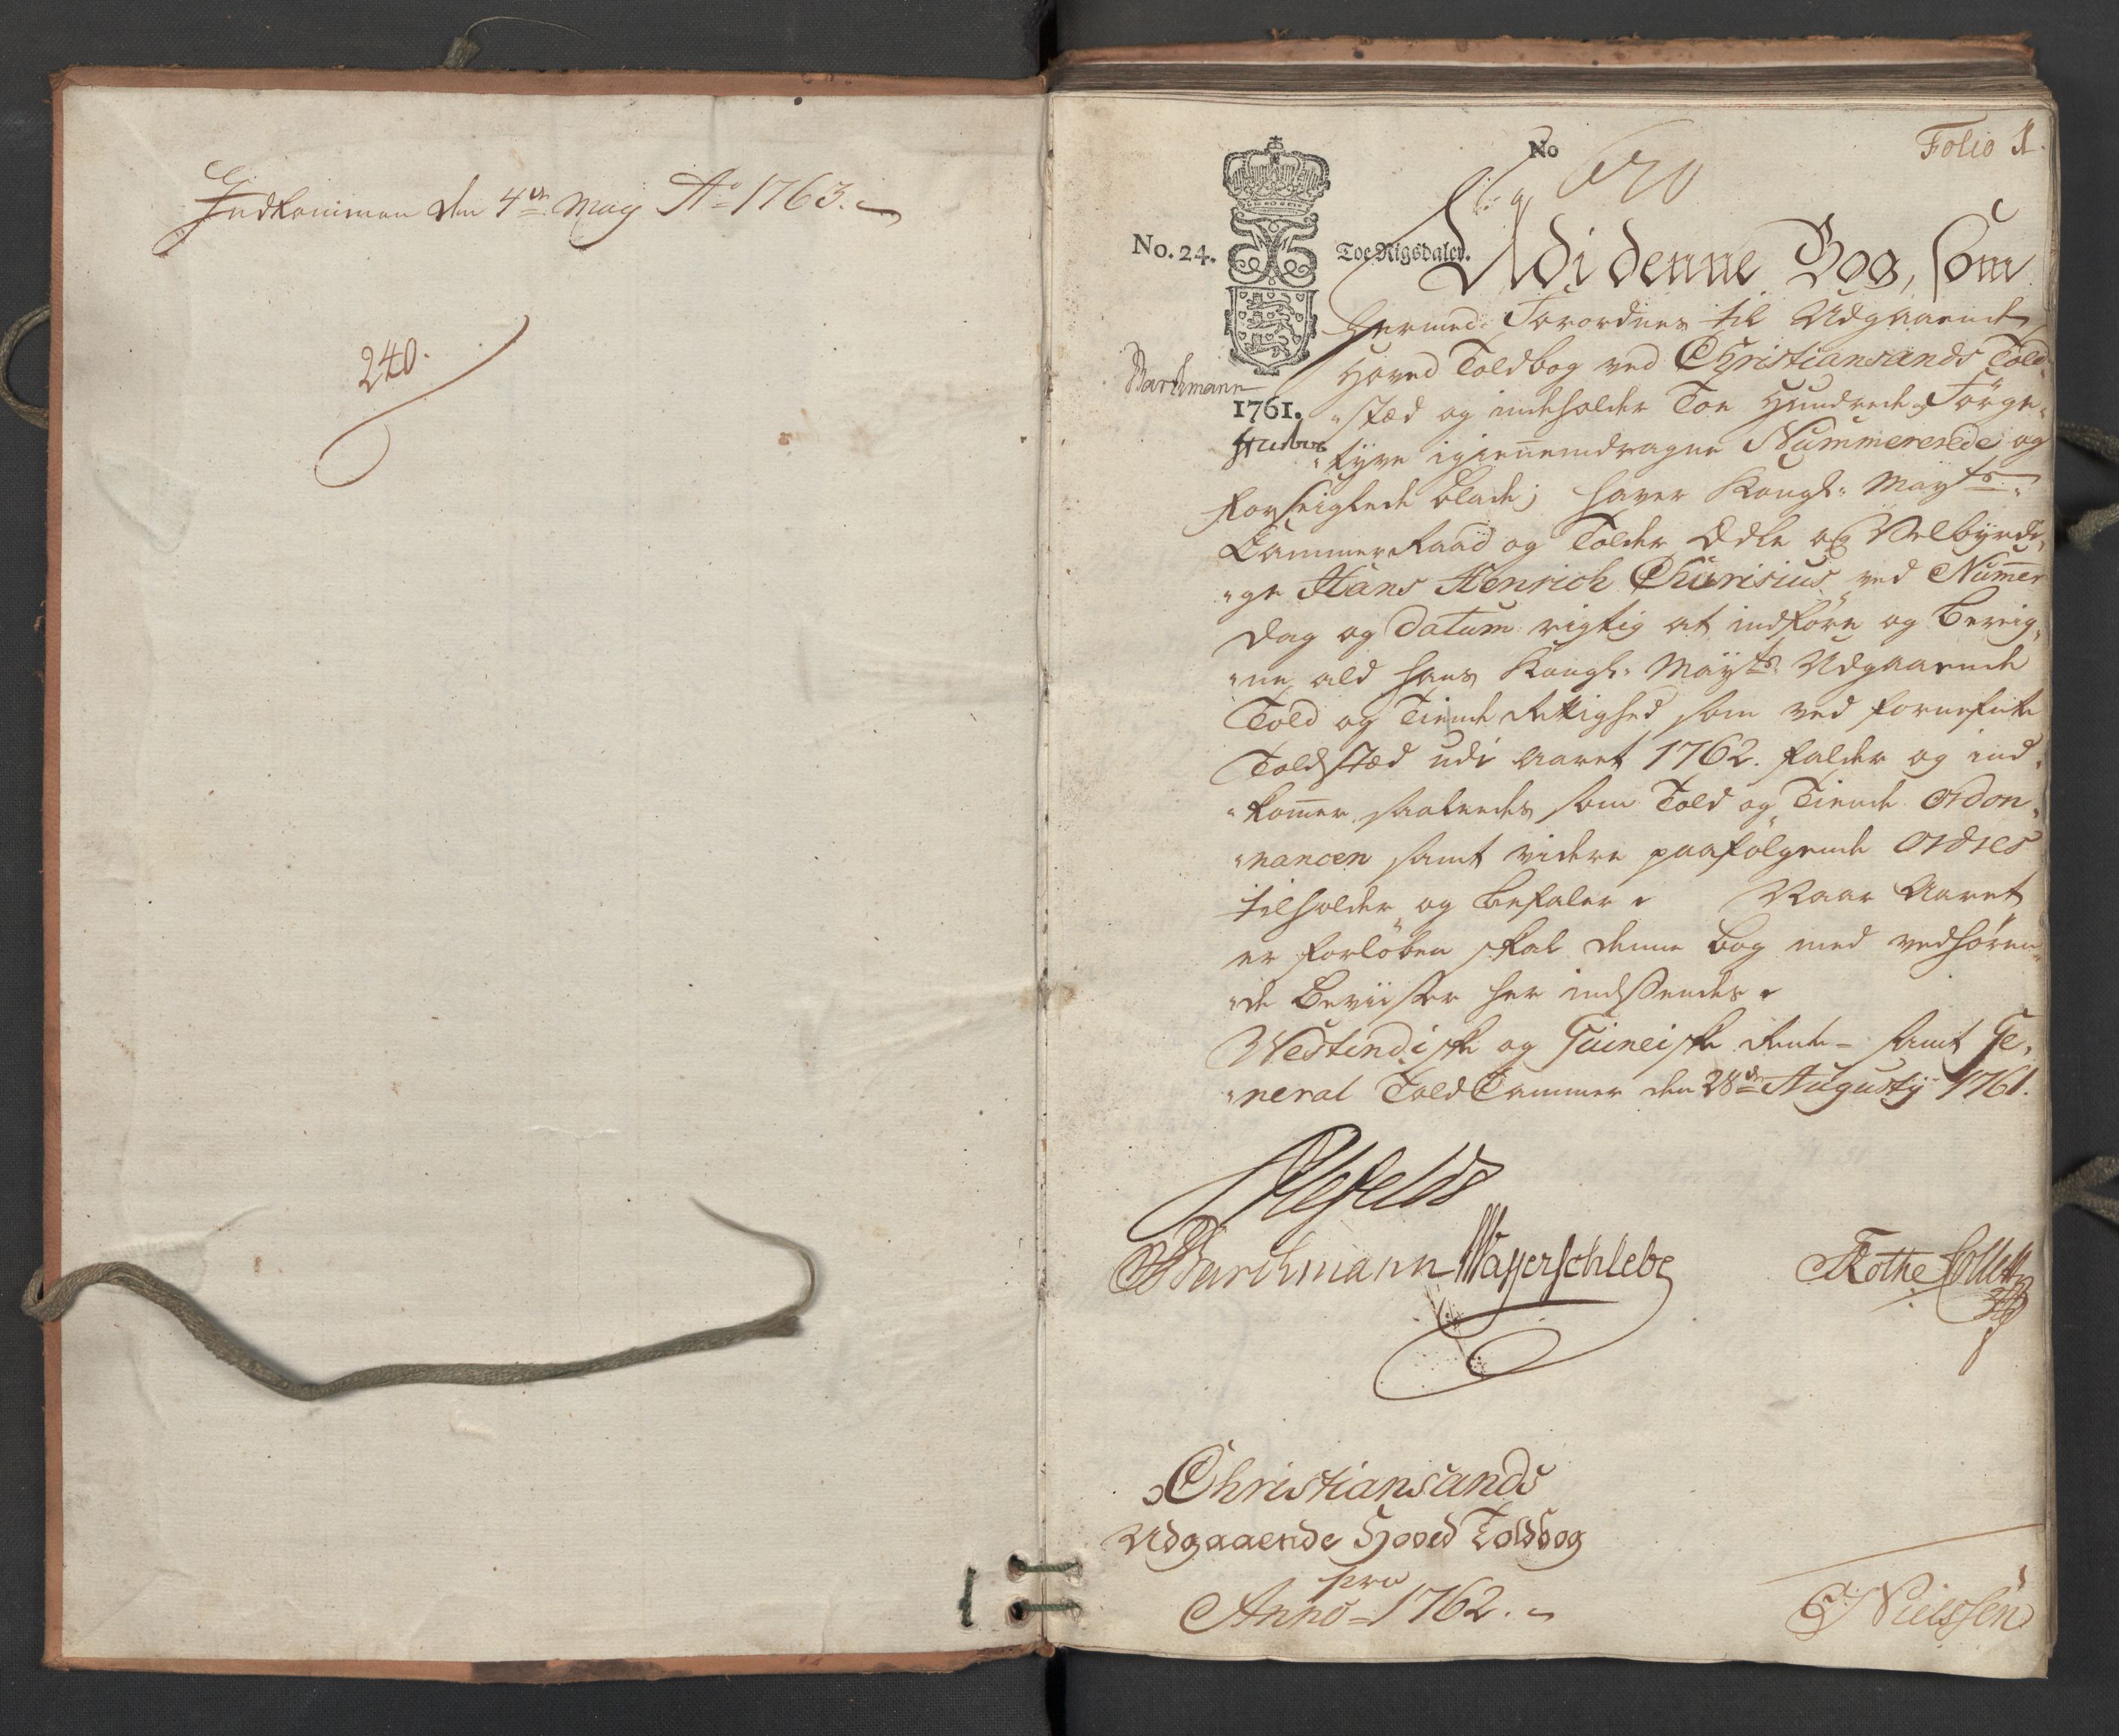 Indkommen den 4de May Ao 1763.
240.
Folio 1.
No 620
No. 24.
Toe Rigsdaler.
Udi denne Bog, som
hermed Forordnes til Udgaaende
Hoved Toldbog ved Christiansands Told-
Barchmann
1761.
stæd og indeholder Toe HundredeFörge-
tyve igiennemdragne Nummererede og
forseiglede blade; haver Kongl: Mayts
Cammer Raad og Tolder Edle og Velbyrdi-
ge Hans Henrich Thurisius ved Numer
Dag og Datum rigtig at indföre og bereig-
ne ald hans Kongl: Mayts Udgaaende
Told og Tiende Rettighed som ved fornefnte
Toldstæd udi Aaret 1762. falder og ind-
komer, saaledes som Told og Tiende Ordon-
nancen samt videre paafölgende Ordres
tilholder og befaler. Naar Aaret
er forlöben skal denne bog med vedhören-
de Beviiser her indsendes.
Westindiske og Guineiske Rente- samt Ge-
neral ToldCammer den 28de Augusty 1761.
Barchmann Wayerschlebe
Rothe Collett
Christiansands
Udgaaende Hoved Toldbog
pro
Anno 1762.
Nielssen